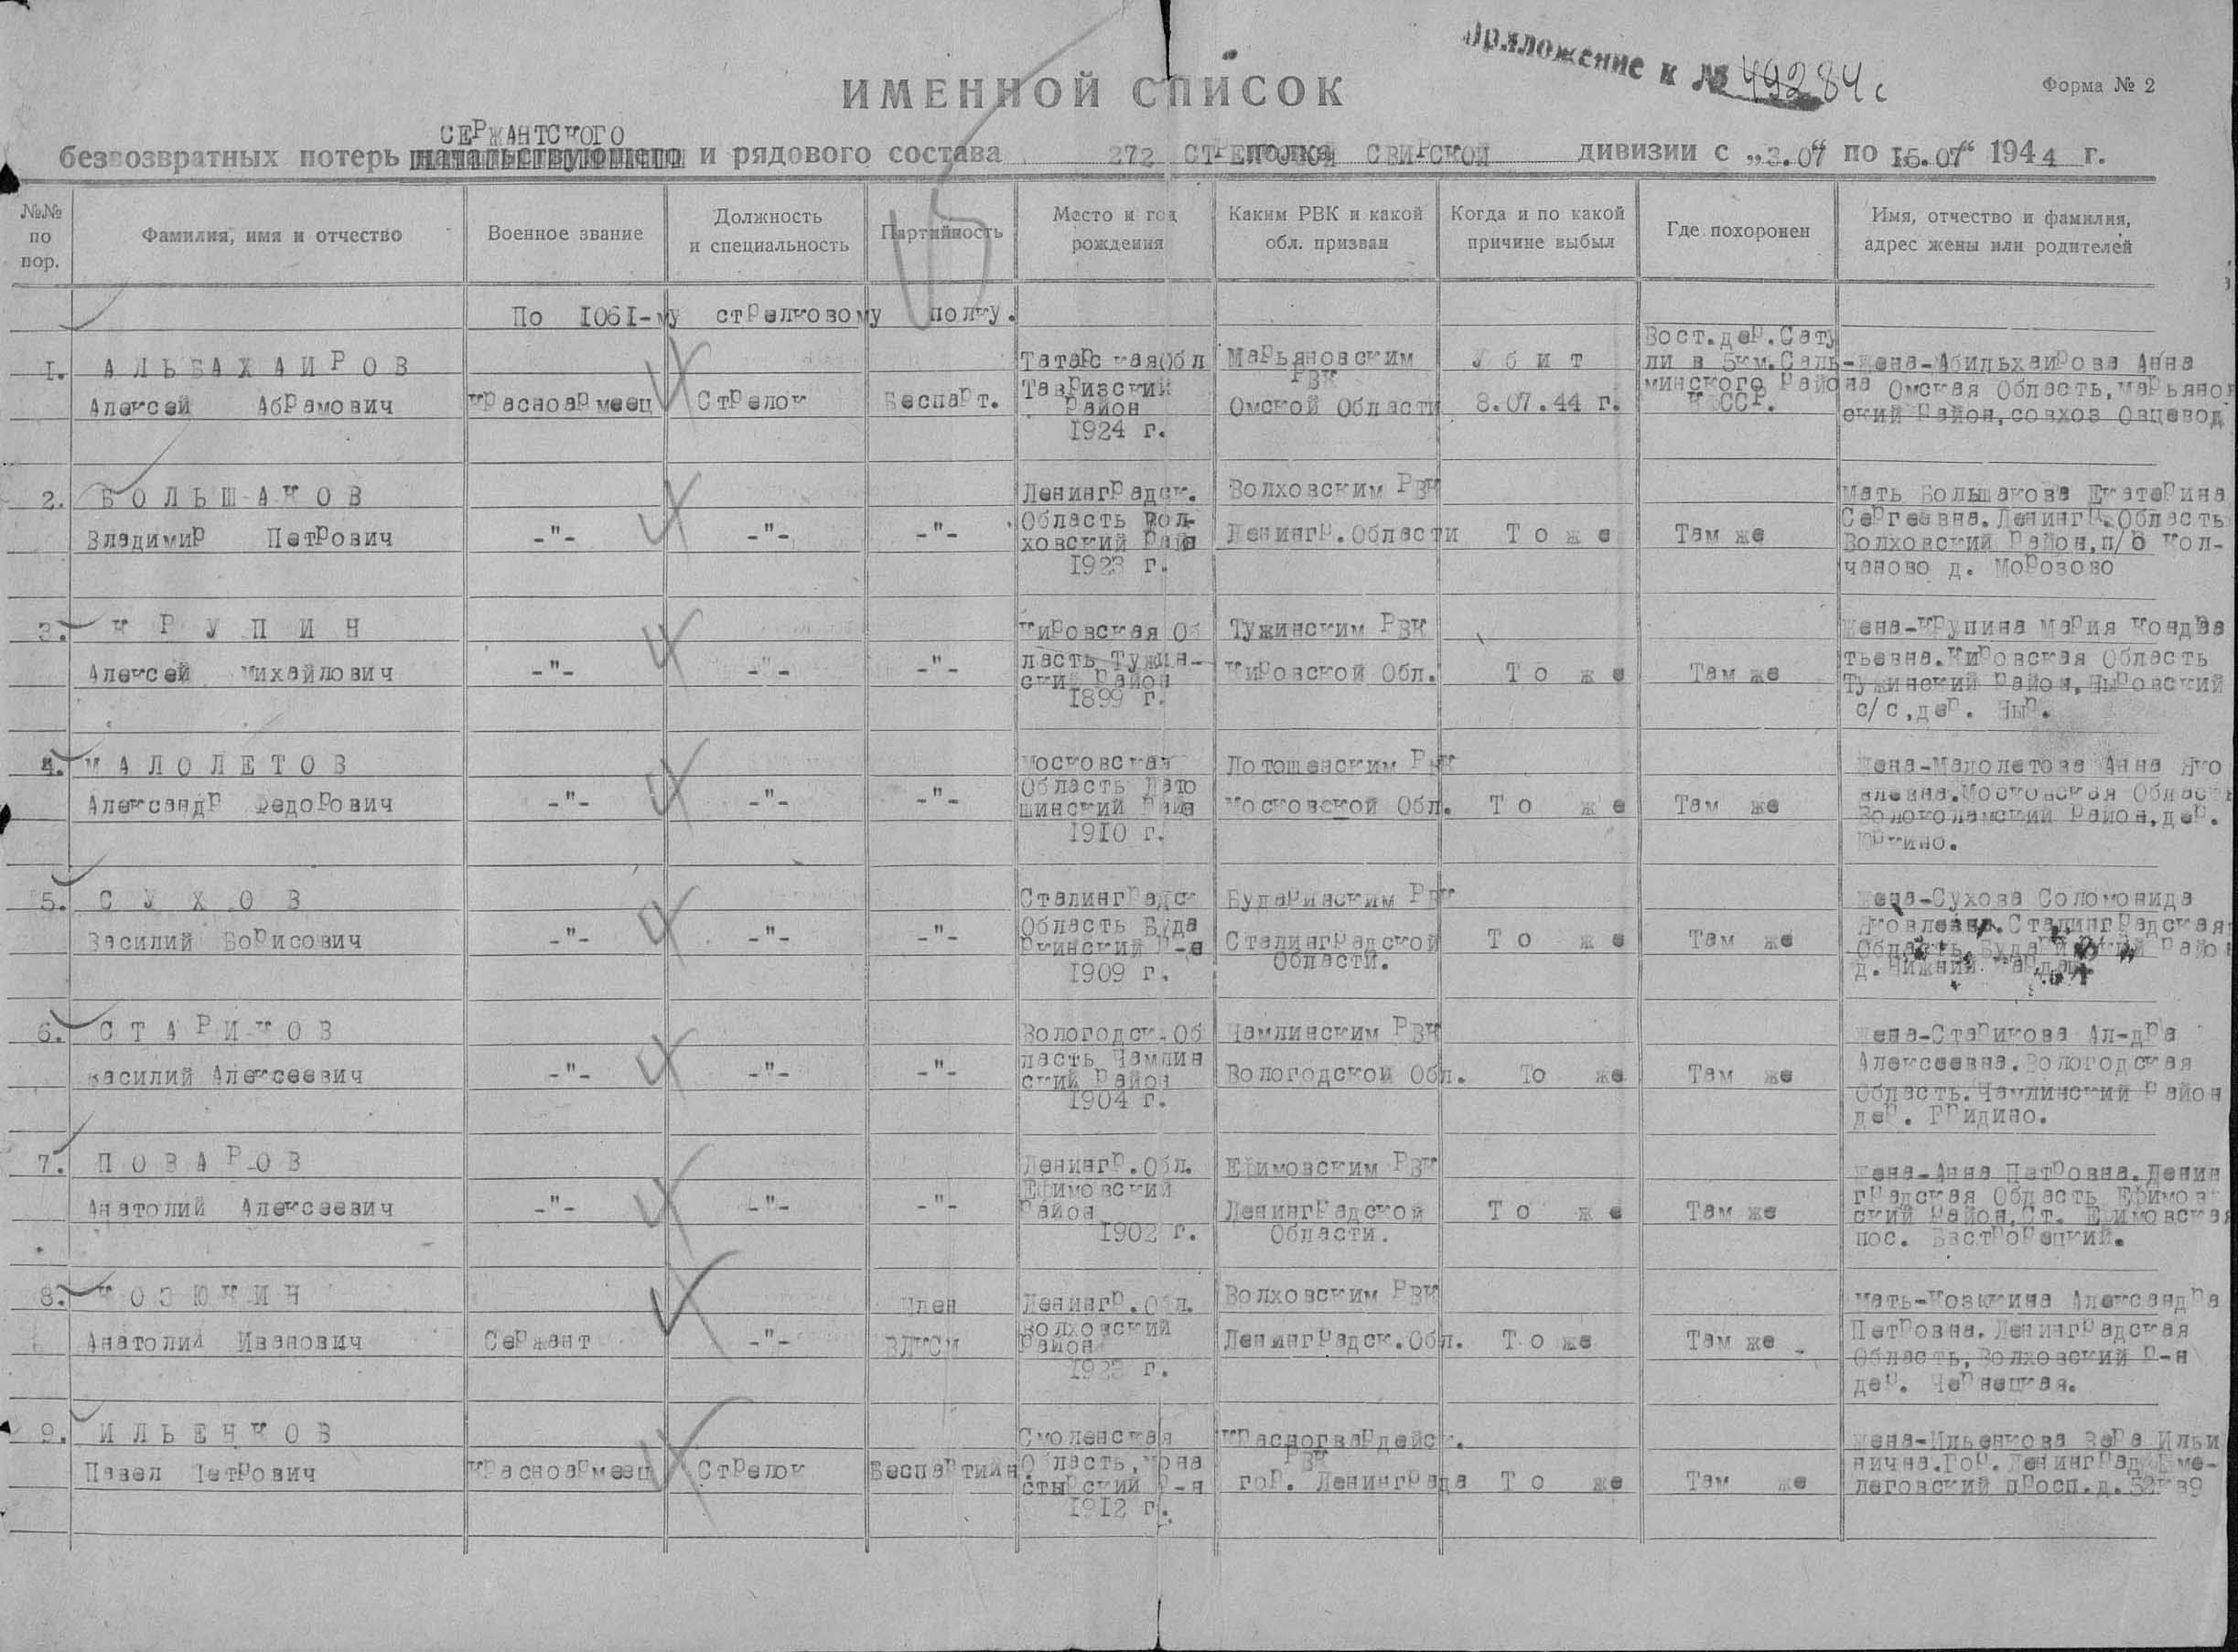 Приложение к № 49284с
Форма № 2
ИМЕННОЙ СПИСОК
СЕРЖАНТСКОГО
безвозвратных потерь начальствующего и рядового состава 272 СТРЕЛКОВОЙ СВИРСКОЙ дивизии с „3.07“ по „15.07“ 1944 г.
№№ по пор.
Фамилия, имя и отчество
Военное звание
Должность и специальность
Партийность
Место и год рождения
Каким РВК и какой обл. призван
Когда и по какой причине выбыл
Где похоронен
Имя, отчество и фамилия, адрес жены или родителей
По 1061-му стрелковому полку.
1. АЛЬБАХАИРОВ
Алексей Абрамович
Красноармеец
Стрелок
Беспарт.
Татарская Обл
Тавризский
Район
1924 г.
Марьяновским
РВК
Омской Области
Убит
8.07.44 г.
Вост.дер.Сату
ли в 5км.Саль-
минского Района
КФССР.
Жена-Абильхаирова Анна
Омская Область,Марьянов
ский Район,совхоз Овцевод
2. БОЛЬШАКОВ
Владимир Петрович
-"-
-"-
-"-
Ленинградск.
Область Вол-
ховский Райн
1923 г.
Волховским РВК
Ленингр.Области
То же
Там же
Мать Большакова Екатерина
Сергеевна.Ленингр.Область
Волховский Район,п/о Кол-
чаново д. Морозово
3. КРУПИН
Алексей Михайлович
-"-
-"-
-"-
Кировская Об
ласть Тужин-
ский Район
1899 г.
Тужинским РВК
Кировской Обл.
То же
Там же
Жена-Крупина Мария Кондра
тьевна.Кировская Область
Тужинский Район,Ныровский
с/с,дер. Ныр.
4. МАЛОЛЕТОВ
Александр Федорович
-"-
-"-
-"-
Московская
Область Лато
шинский Райн
1910 г.
Лотошенским РВК
Московской Обл.
То же
Там же
Жена-Малолетова Анна Яко
влевна.Московская Област
Волоколамский Район,дер.
Юркино.
5. СУХОВ
Василий Борисович
-"-
-"-
-"-
Сталинградск
Область Буда
ркинский Р-н
1909 г.
Бударинским РВК
Сталинградской
Области.
То же
Там же
Жена-Сухова Соломонида
Яковлевна.Сталинградская
Область,Бударинский Район
д.Нижний
6. СТАРИКОВ
Василий Алексеевич
-"-
-"-
-"-
Вологодск.Об
ласть Чамлин
ский Район
1904 г.
Чамлинским РВК
Вологодской Обл.
То же
Там же
Жена-Старикова Ал-дра
Алексеевна.Вологодская
Область.Чамлинский Район
дер. Гридино.
7. ПОВАРОВ
Анатолий Алексеевич
-"-
-"-
-"-
Ленингр.Обл.
Ефимовский
Район
1902 г.
Ефимовским РВК
Ленинградской
Области.
То же
Там же
Жена-Анна Петровна.Ленин
градская Область Ефимов
ский Район,Ст. Ефимовская
пос. Быстрорецкий.
8. КОЗЮКИН
Анатолий Иванович
Сержант
-"-
Член
ВЛКСМ
Ленингр.Обл.
Волховский
Район
1923 г.
Волховским РВК
Ленинградск.Обл.
То же
Там же
Мать-Козюкина Александра
Петровна.Ленинградская
Область,Волховский Р-н
дер. Чернецкая.
9. ИЛЬЕНКОВ
Павел Петрович
Красноармеец
Стрелок
Беспартийн
Смоленская
Область,Мона
стырский Р-н
1912 г.
Красногвардейск.
РВК
гор. Ленинграда
То же
Там же
Жена-Ильенкова Вера Ильи
нична.Гор. Ленинград
леговский просп.д.52кв9